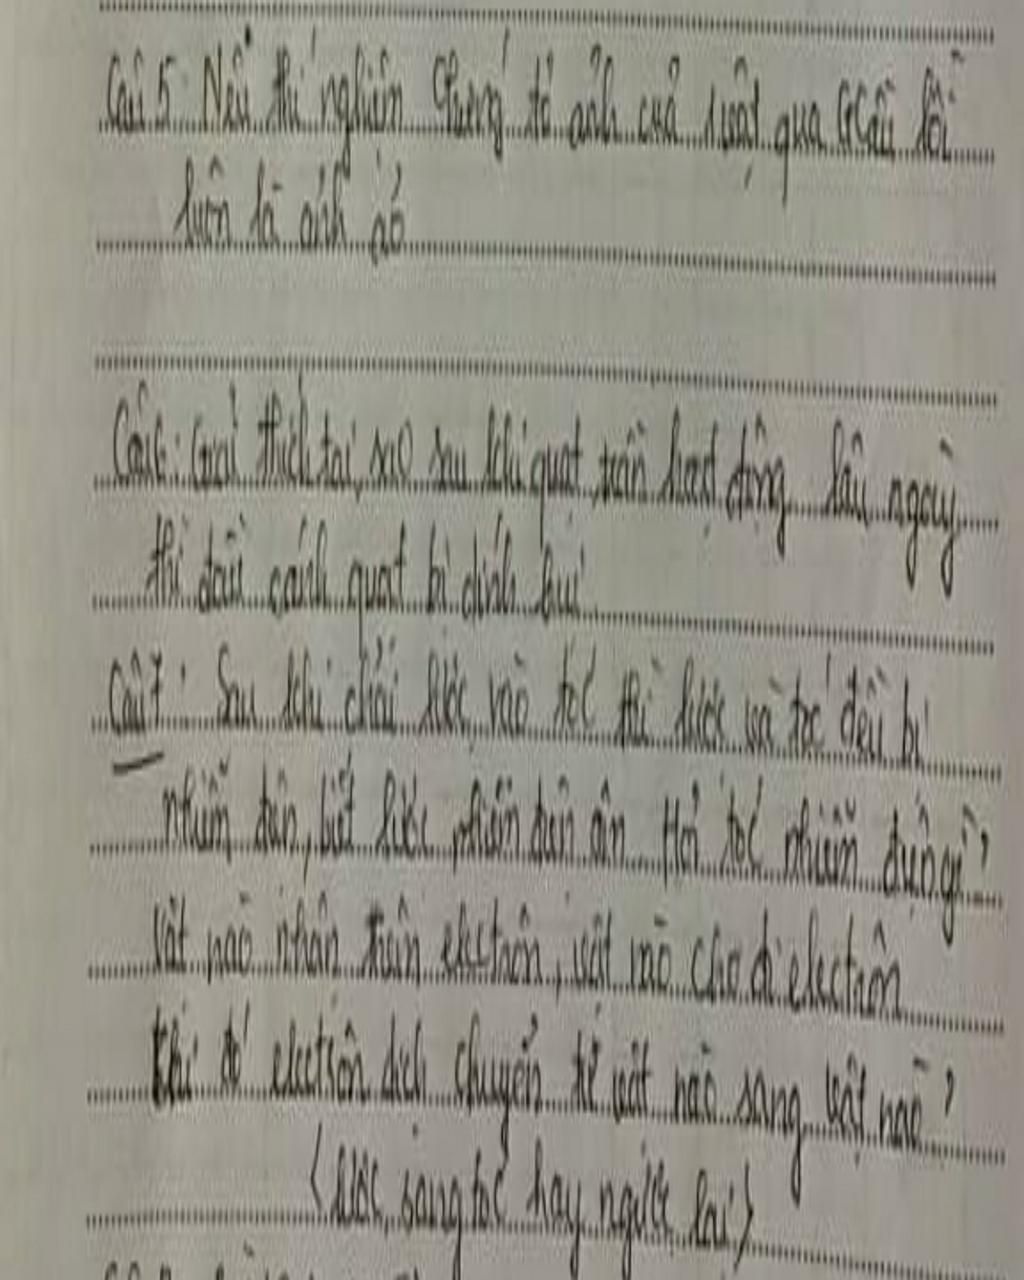 Câu 5: Nêu thí nghiệm chứng tỏ ảnh của vật qua GCầu lồi
luôn là ảnh ảo
Câu 6: Giải thích tại sao sau khi quạt trần hoạt động lâu ngày
thì đầu cánh quạt bị dính bụi
Câu 7: Sau khi chải lược vào tóc thì lược và tóc đều bị
nhiễm điện, biết lược nhiễm điện âm Hỏi tóc nhiễm điện gì?
Vật nào nhận thêm electrôn, vật nào cho đi electrôn
Khi đó electrôn dịch chuyển từ vật nào sang vật nào?
(lược sang tóc hay ngược lại)